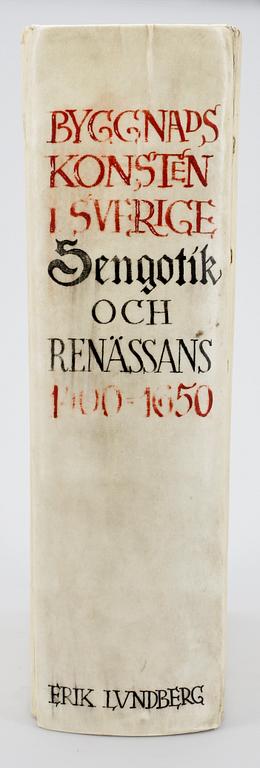 BYGGNADS
KONSTEN
I SVERIGE
Sengotik
OCH
RENÄSSANS
1400-1650
ERIK LVNDBERG